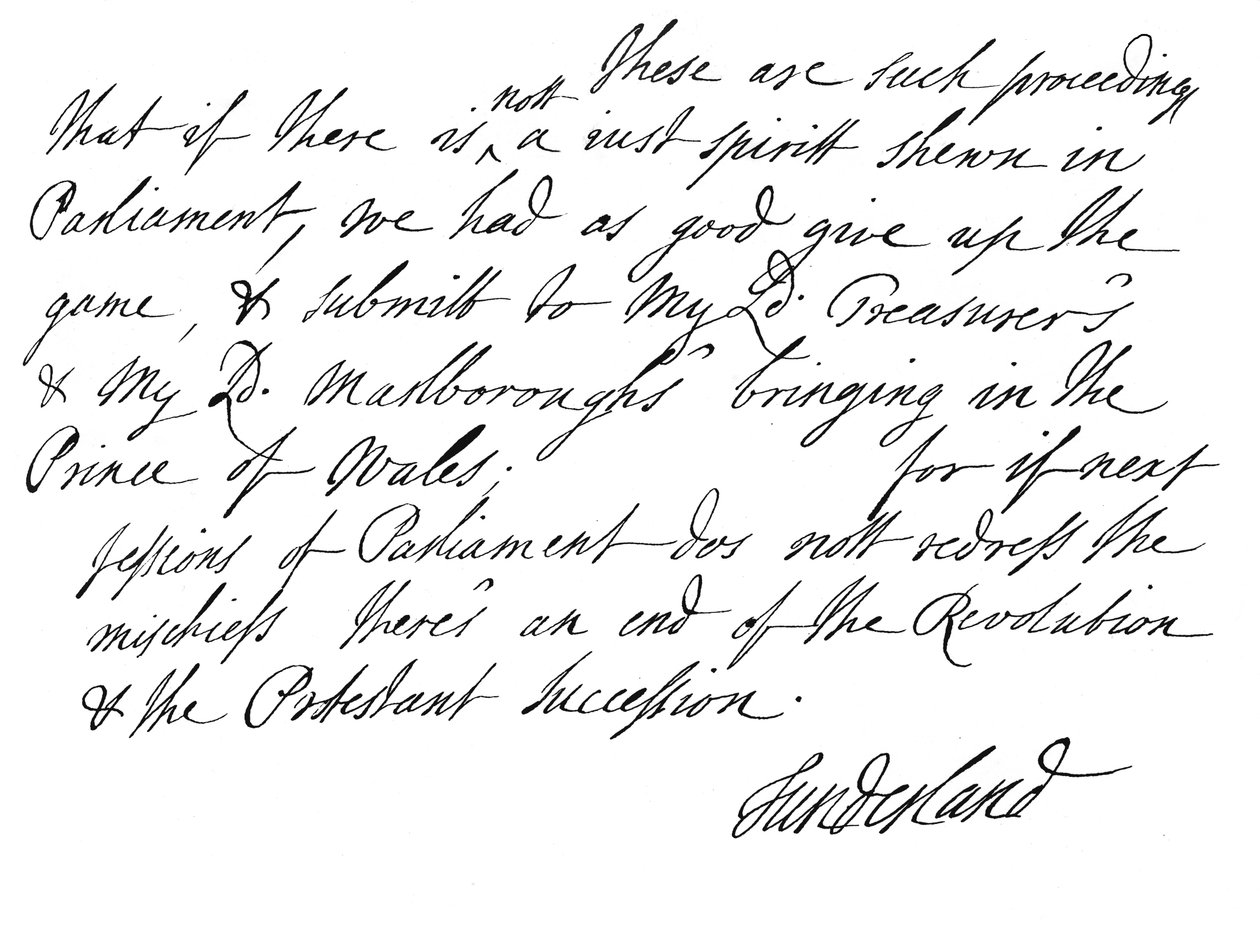 These are such proceedings
that if there is ^ nott a iust spiritt shewn in
Parliament, we had as good give up the
game, & submitt to My Ld. Treasurer's
& My Ld. Marlborough's bringing in the
Prince of Wales; for if next
sessions of Parliament dos nott redress the
mischiefs there's an end of the Revolution
& the Protestant succession.
Sunderland